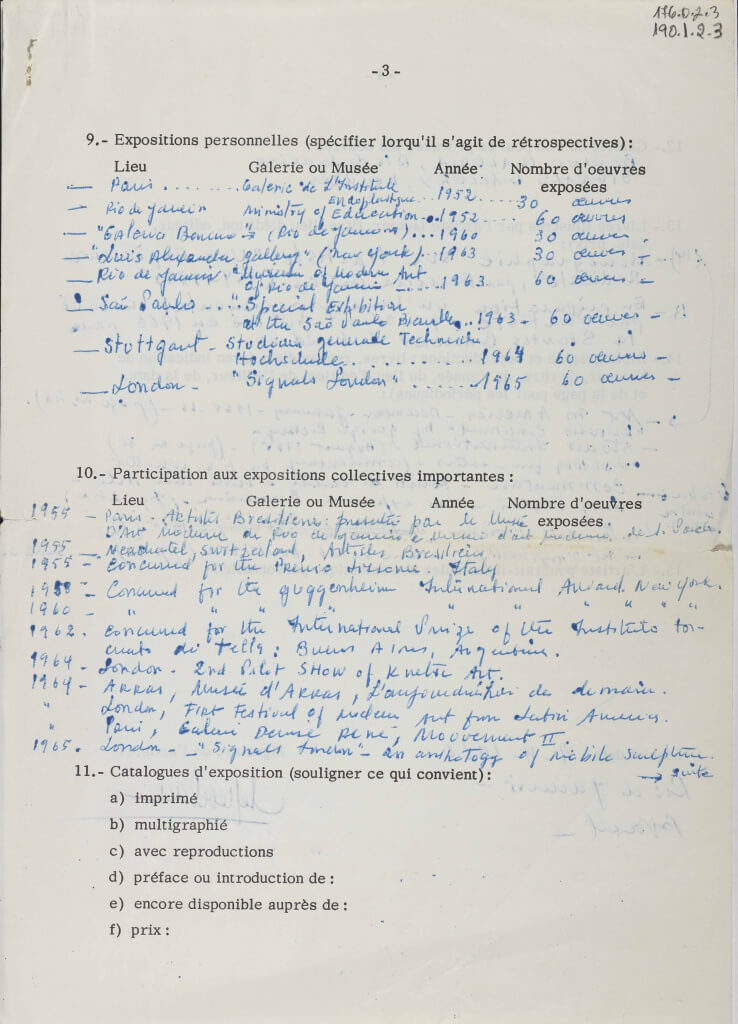 176.0.2.3
190.1.2.3
-3-
9.- Expositions personnelles (spécifier lorqu'il s'agit de rétrospectives):
Lieu Galerie ou Musée Année Nombre d'oeuvres
exposées
— Paris ....... Galerie de L'Institute
Endoplastique ... 1952 ... 30 œuvres
— Rio de Janeiro Ministry of Education - . 1952 ... 60 œuvres
— "Galeria Bonino" - (Rio de Janeiro) ... 1960 30 œuvres
— "Luis Alexander gallery" (New York) .. 1963 30 œuvres -
— Rio de Janeiro "Museum of Modern Art
of Rio de Janeiro - .... 1963. 60 œuvres -
São Paulo - .. "Special Exhibition
at the São Paulo Biennale .. 1963 - 60 œuvres -
— Stuttgart - Studium generale Technische
Hochschule ....... 1964 60 œuvres -
— London - "Signals London" ...... 1965 60 œuvres -
10.- Participation aux expositions collectives importantes:
Lieu Galerie ou Musée Année Nombre d'oeuvres
exposées.
1955 - Paris - Artistes Brésiliens: presenté par le Musée
D'Art Moderne de Rio de Janeiro e d'art moderne de S. Paulo.
1955 - Neuchatel, Switzerland, Artistes Brésiliens
1955 - Concurred for the Premio Lissone. Italy
1958 - Concurred for the guggenheim International Award. New York.
1960 - " " " " " " " "
1962. Concurred for the International Prize of the Instituto Tor-
cuato di Tella: Buenos Aires, Argentina.
1964 - London - 2nd Pilot SHOW of Kinetic Art.
1964 - ARRAS, Musée d'ARRAS, L'aujourd'hui de demain.
" London, First Festival of Modern Art from Latin America.
" Paris, Galerie Denise René, Mouvement II.
1965. London - "Signals London" - an anthology of Mobile Sculpture.
→ suite
11.- Catalogues d'exposition (souligner ce qui convient):
a) imprimé
b) multigraphié
c) avec reproductions
d) préface ou introduction de:
e) encore disponible auprès de:
f) prix: